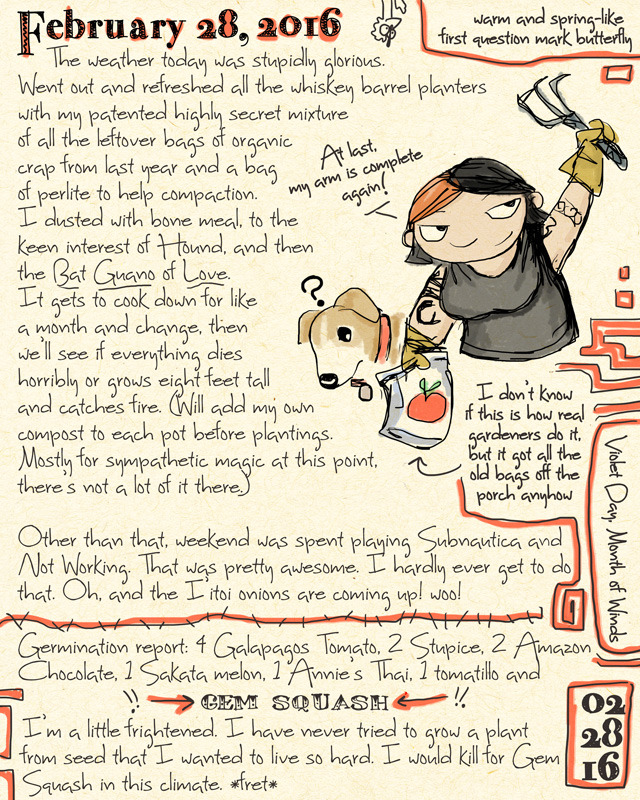 February 28, 2016
warm and spring-like
first question mark butterfly
The weather today was stupidly glorious.
Went out and refreshed all the whiskey barrel planters
with my patented highly secret mixture
of all the leftover bags of organic
crap from last year and a bag
of perlite to help compaction.
I dusted with bone meal, to the
keen interest of Hound, and then
the Bat Guano of Love.
It gets to cook down for like
a month and change, then
we'll see if everything dies
horribly or grows eight feet tall
and catches fire. (Will add my own
compost to each pot before plantings.
Mostly for sympathetic magic at this point,
there's not a lot of it there.)
At last,
my arm is complete
again!
?
I don't know
if this is how real
gardeners do it,
but it got all the
old bags off the
porch anyhow
Violet Day, Month of Winds
Other than that, weekend was spent playing Subnautica and
Not Working. That was pretty awesome. I hardly ever get to do
that. Oh, and the I'itoi onions are coming up! woo!
Germination report: 4 Galapagos Tomato, 2 Stupice, 2 Amazon
Chocolate, 1 Sakata melon, 1 Annie's Thai, 1 tomatillo and
!! GEM SQUASH !!
I'm a little frightened. I have never tried to grow a plant
from seed that I wanted to live so hard. I would kill for Gem
Squash in this climate. *fret*
02
28
16